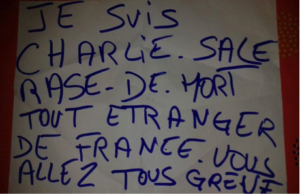 JE SUIS
CHARLIE. SALE
RASE-DE. MORT
TOUT ETRANGER
DE FRANCE. VOUS
ALLEZ TOUS GREVE